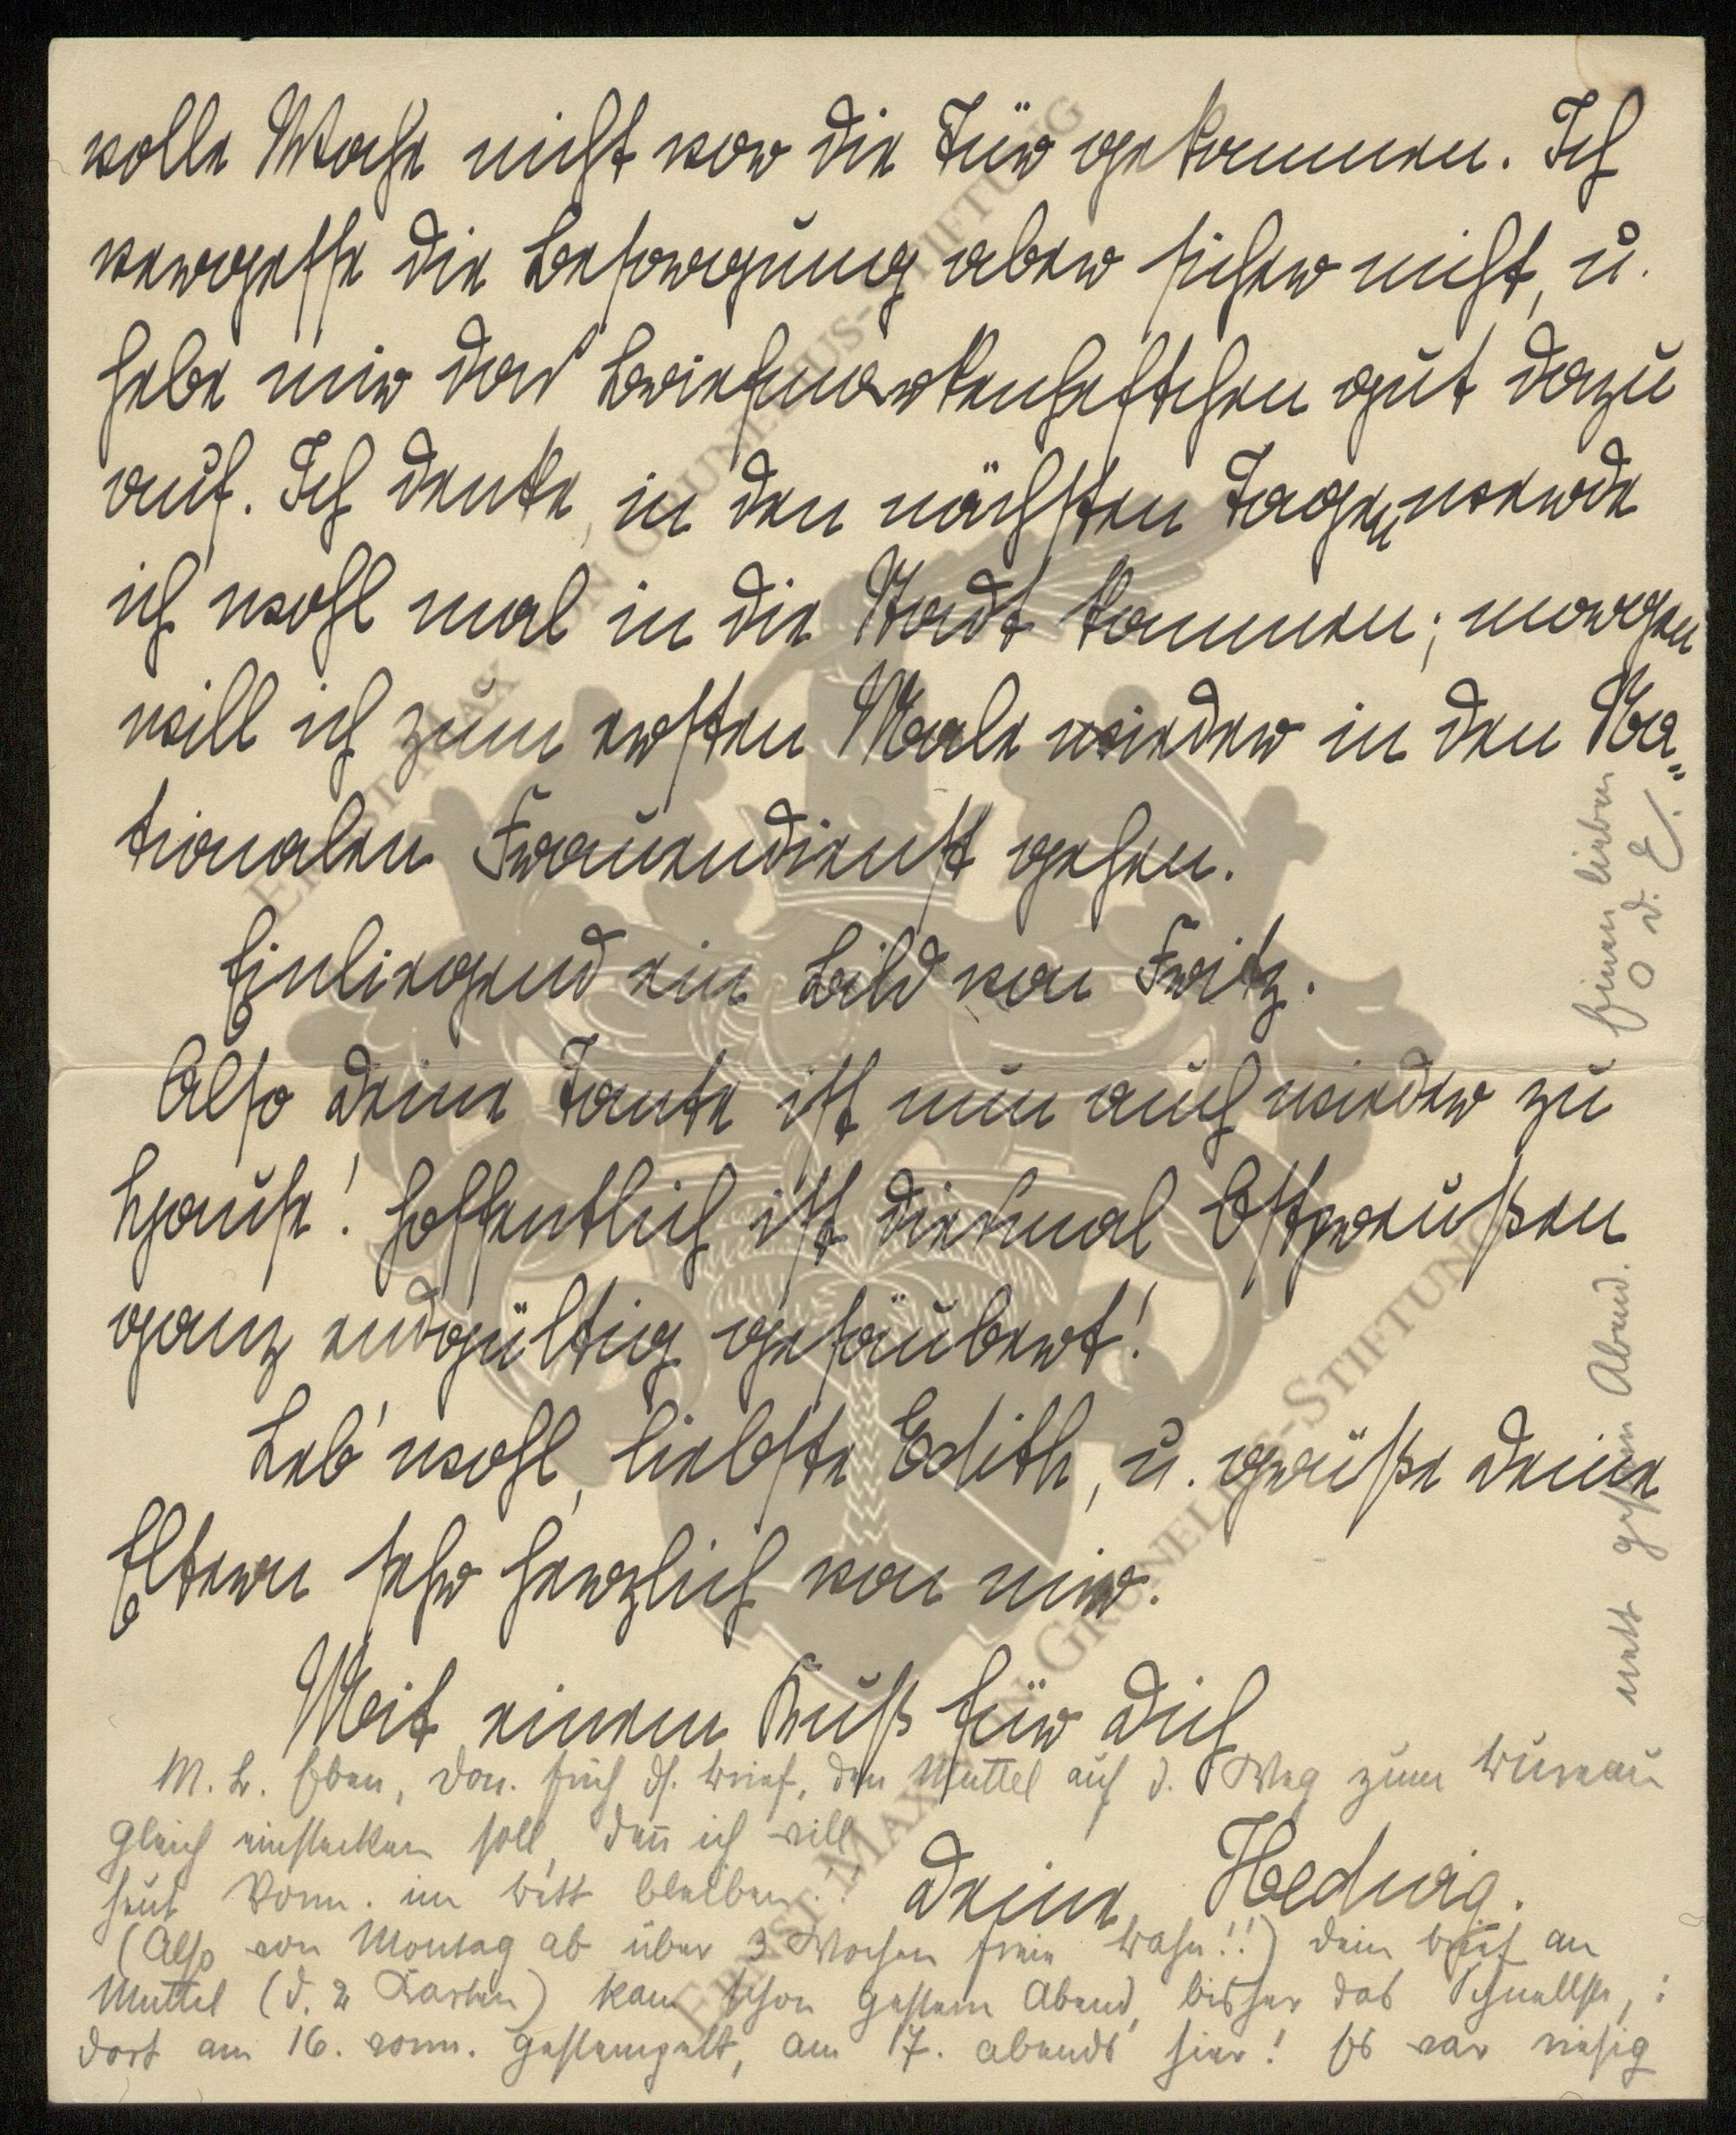 volle Woche nicht vor die Tür gekommen. Ich
vergesse die Besorgung aber sicher nicht, u.
hebe mir das Briefmarkenheftchen gut dazu
auf. Ich denke, in den nächsten Tagen werde
ich wohl mal in die Stadt kommen; morgen
will ich zum ersten Male wieder in den Na-
tionalen Frauendienst gehen.
Einliegend ein Bild von Fritz.
Also Deine Tante ist nun auch wieder zu
Hause! Hoffentlich ist diesmal Ostpreußen
ganz endgültig gesäubert!
Leb' wohl, liebste Edith, u. grüße Deine
Eltern sehr herzlich von mir.
Mit einem Kuß für Dich
Deine Hedwig.
M. L. Eben, Don. früh ds. Brief, den Muttel auf d. Weg zum Bureau
gleich einstecken soll, denn ich will
heut Vorm. im Bett bleiben.
(Also von Montag ab über 3 Wochen freie Bahn!!) Dein Brief an
Muttel (d. 2 Karten) kam schon gestern Abend, bisher das Schnellste,:
dort am 16. vorm. gestempelt, am 17. abends hier! Es war riesig
nett gestern Abend.
Einen lieben
O d. E.
ERNST MAX VON GRUNELIUS-STIFTUNG
ERNST MAX VON GRUNELIUS-STIFTUNG